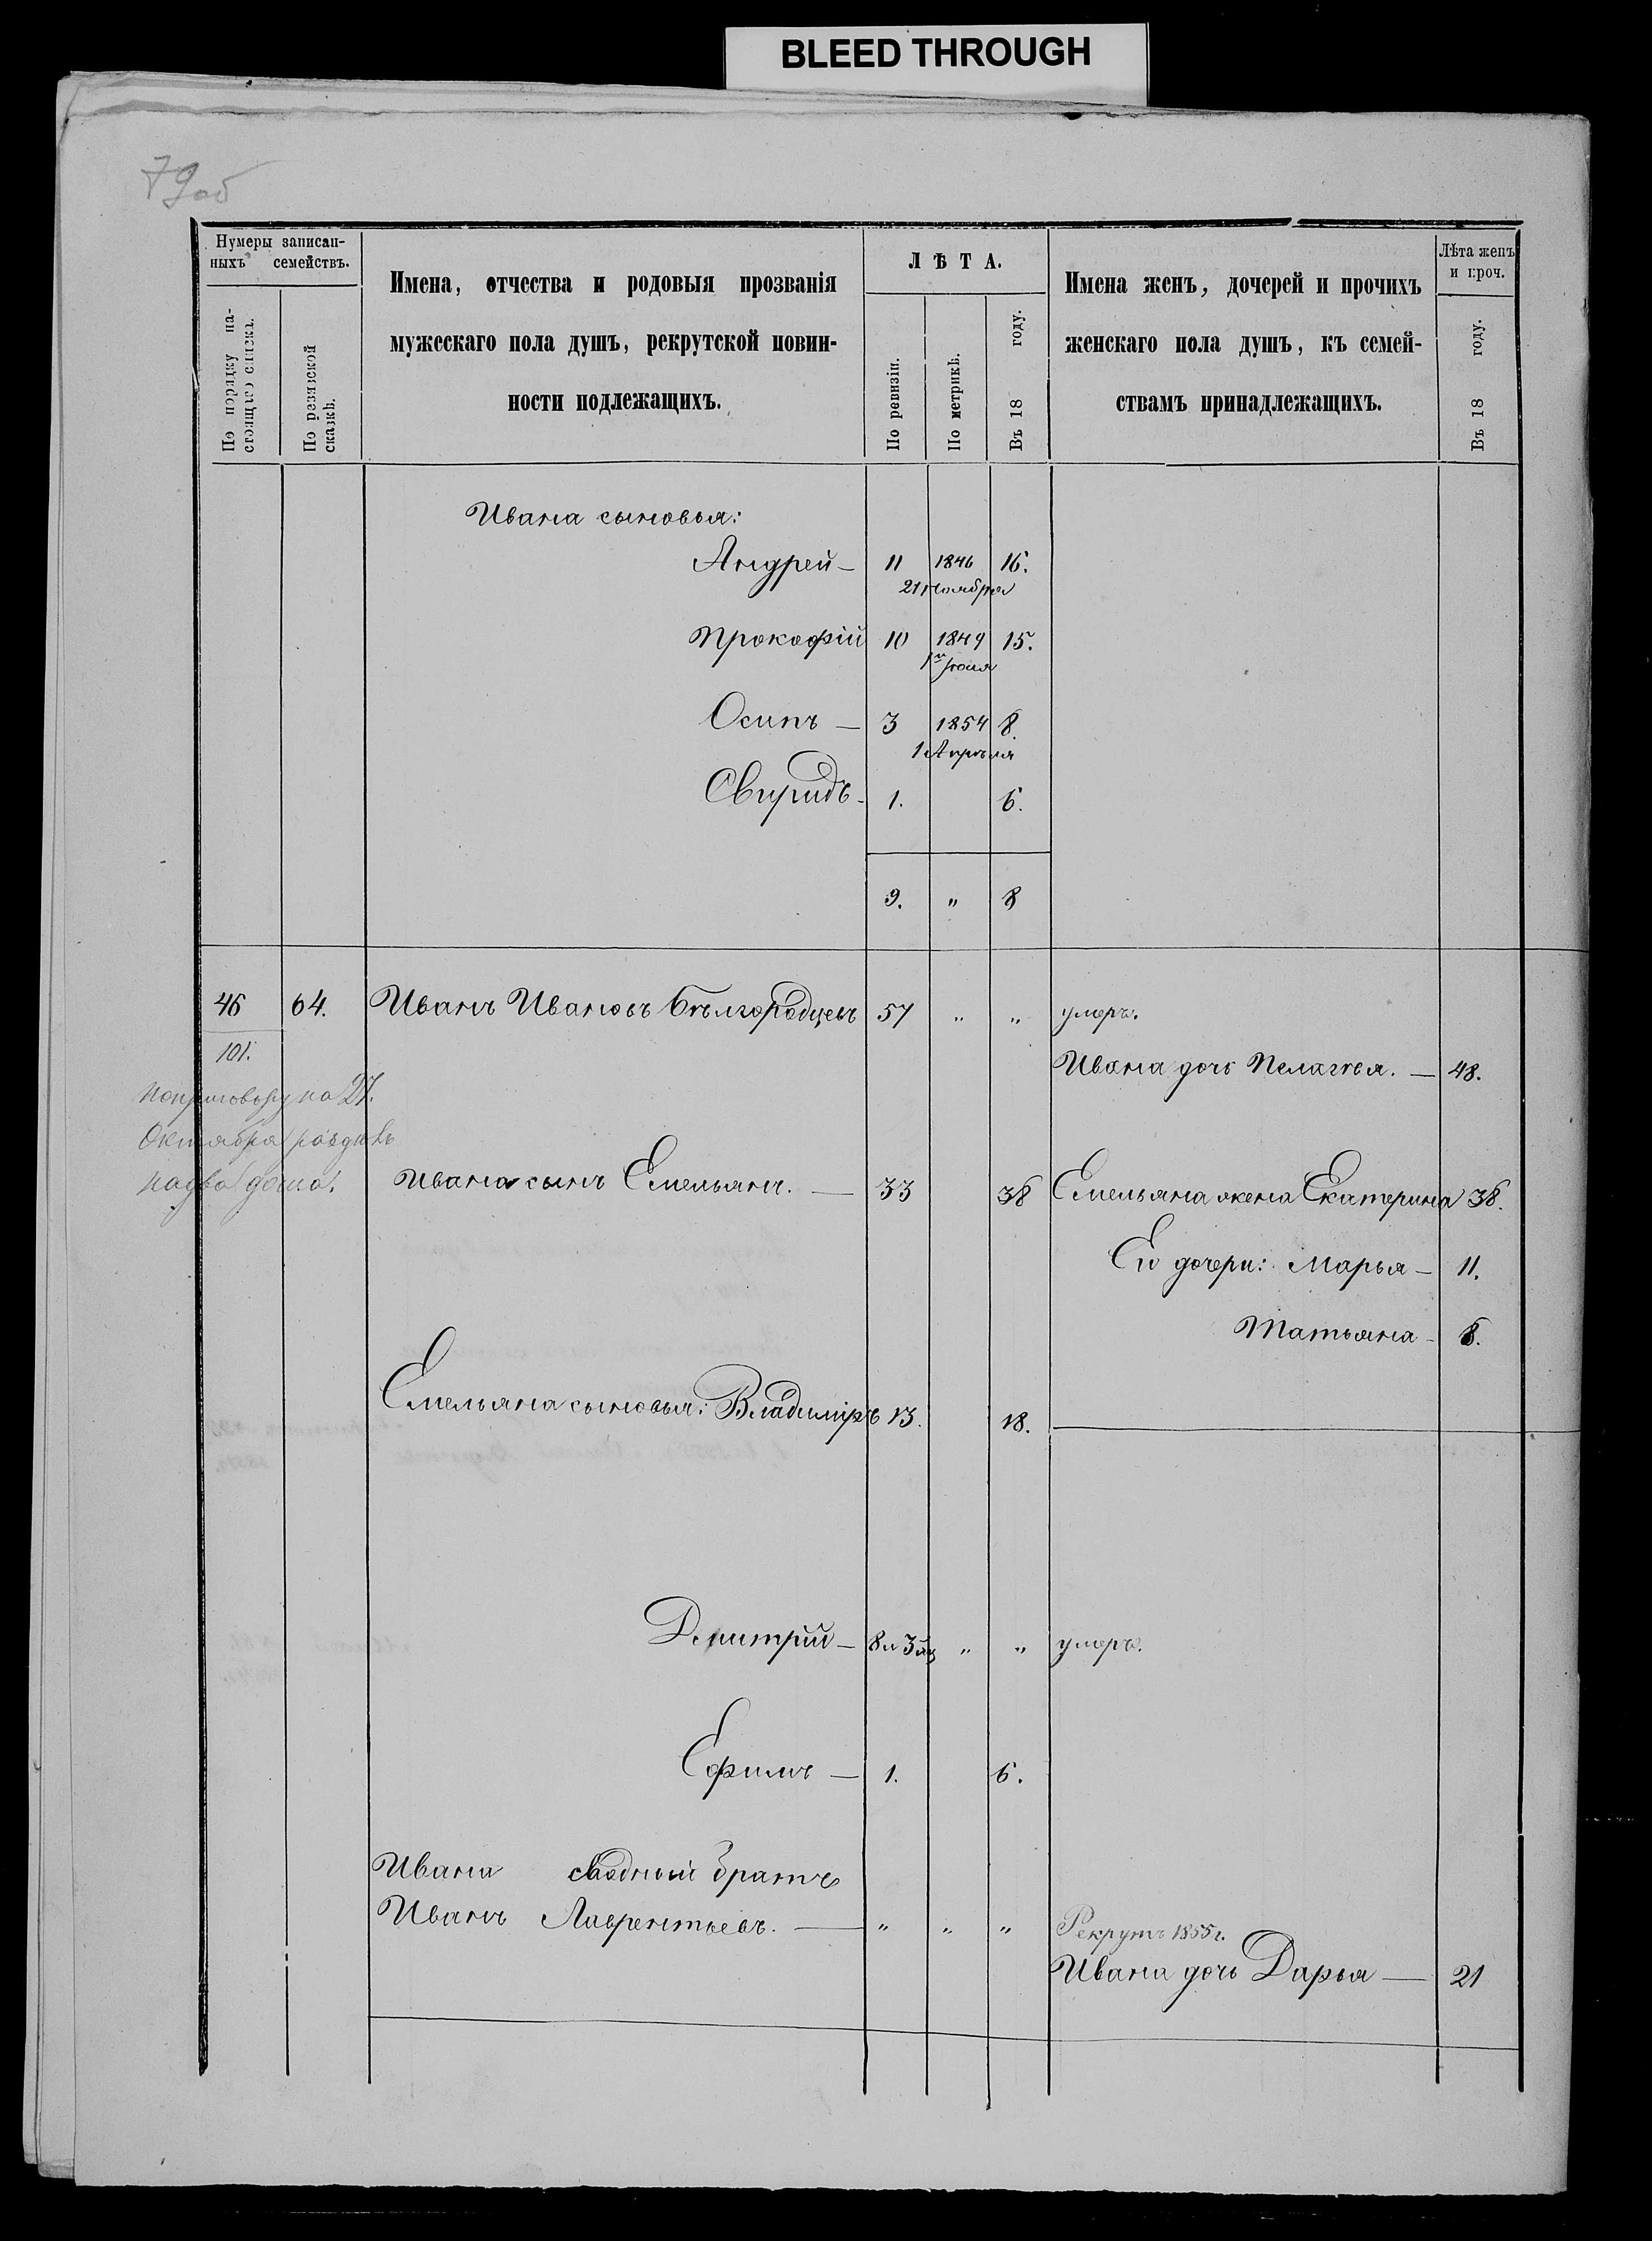 BLEED THROUGH
79об
Нумеры записан-
ныхъ семействъ.
По порядку на-
стоящаго списка.
По ревизской
сказкѣ.
Имена, отчества и родовыя прозванія
мужескаго пола душъ, рекрутской повин-
ности подлежащихъ.
ЛѢТА.
По ревизіи.
По метрикѣ.
Въ 18 году.
Имена женъ, дочерей и прочихъ
женскаго пола душъ, къ семей-
ствамъ принадлежащихъ.
Лѣта женъ
и проч.
Въ 18 году.
Ивана сыновья:
Андрей — 11 1846 16.
21 ноября
Прокофій 10 1849 15.
Осипъ — 3 1854 8.
1 Апрѣля
Свиридъ — 1. 6.
9. " 8
46 64. Иванъ Ивановъ Бѣлгородцевъ 57 " " умеръ.
101.
Ивана дочь Пелагея. — 48.
по приговору на 27.
Октября раздѣлъ
на два дома.
Ивана сынъ Емельянъ. — 33 38 Емельяна жена Екатерина 38.
Ею дочери: Марья — 11.
Татьяна — 8.
Емельяна сыновья: Владиміръ 13. 18.
Дмитрій — 8 и 3 мц " " умеръ.
Ефимъ — 1. 6.
Ивана сводный братъ
Иванъ Лаврентьевъ. — " " " Рекрутъ 1855 г.
Ивана дочь Дарья — 21